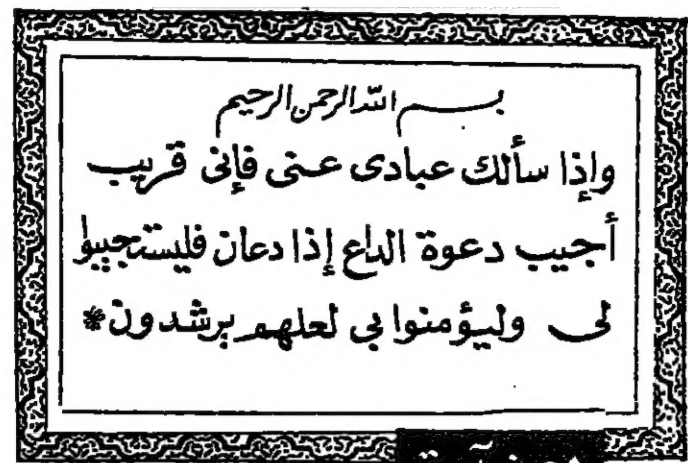 بسم الله الرحمن الرحيم
وإذا سألك عبادى عنى فإنى قريب
أجيب دعوة الداع إذا دعان فليستجيبوا
لى وليؤمنوا بي لعلهم يرشدون *